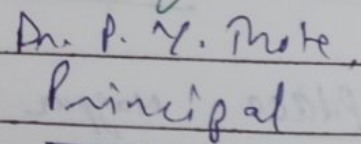 Dr. P. Y. Thote,
Principal